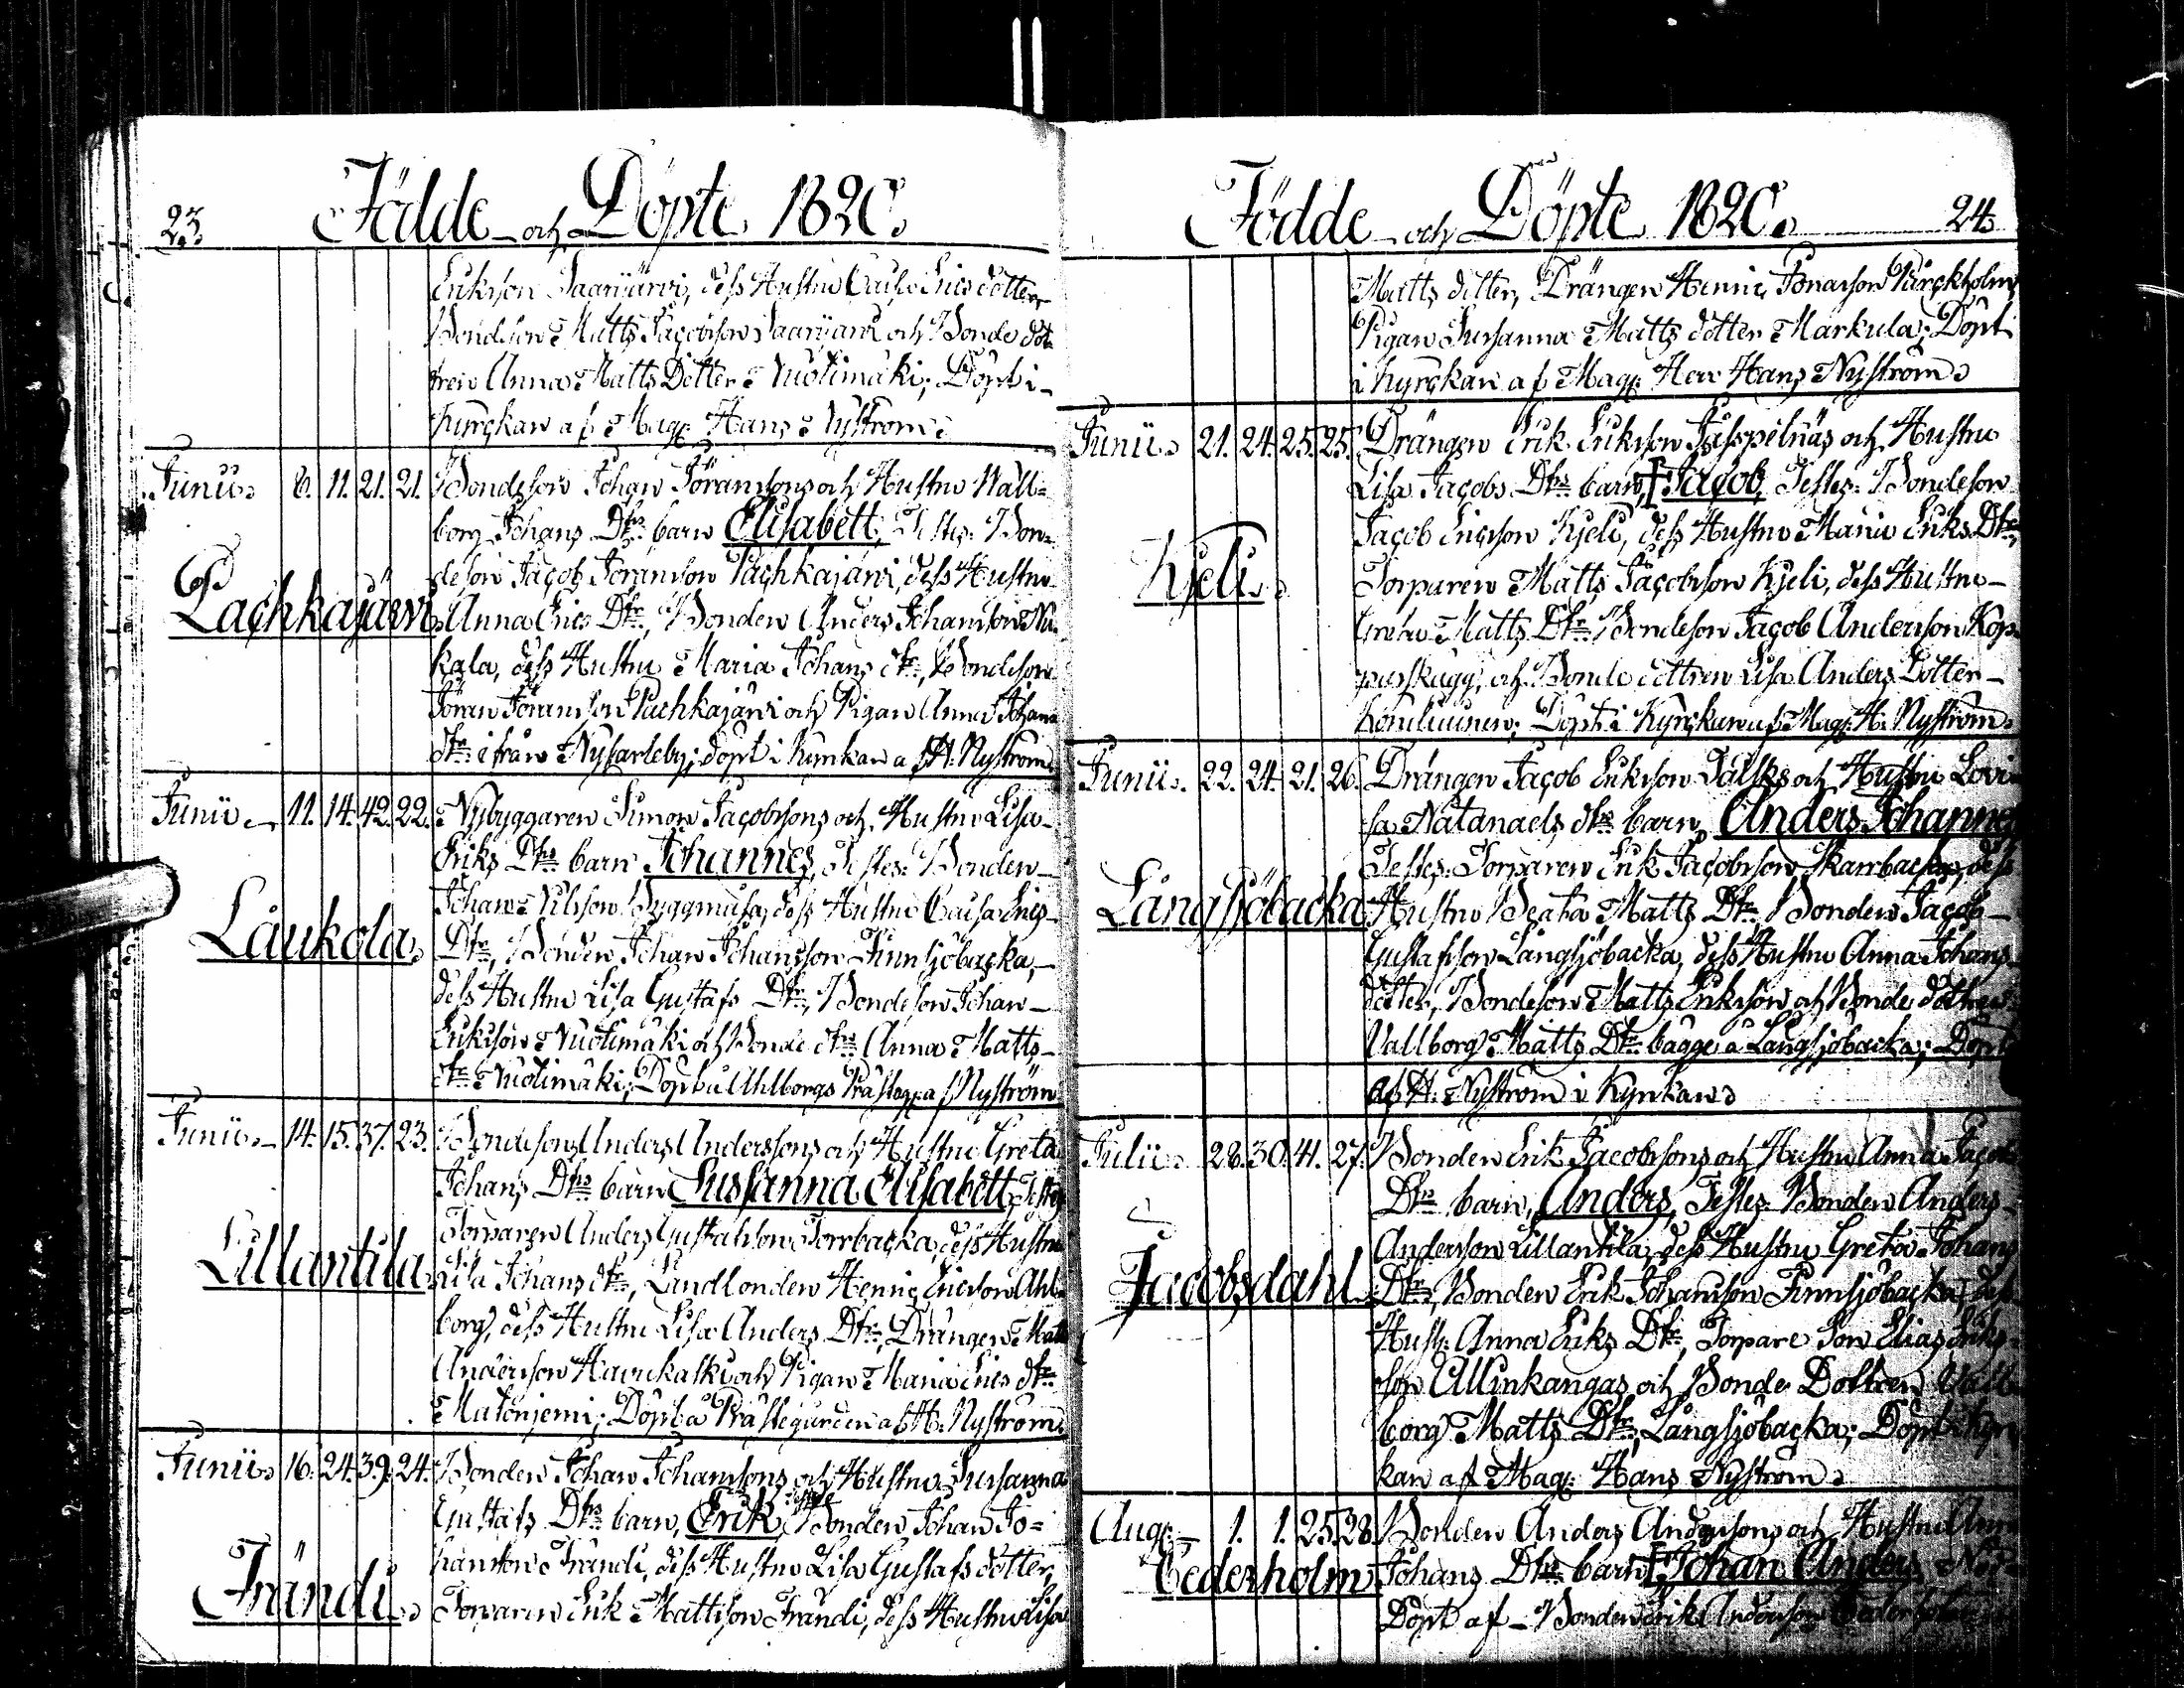 23.
Födde och Döpte 1820.
Erikson Saarijärvi, dess Hustru Caisa Erics dotter,
Bondeson Matts Jacobson Saarijärvi och Bonde dot
tren Anna Matts Dotter Vuotimäki; Döpt i
kyrckan af Mag: Hans Nyström.
Junii. 8. 11. 21. 21. Bondeson Johan Joransons och Hustru Wall=
borg Johans Dtrs barn Elisabett, Testes: Bon=
deson Jacob Joranson Pachkajärvi, dess Hustru
Pachkajärvi. Anna Erics Dtr, Bonden Anders Johanson
kala, dess Hustru Maria Johans dtr, Bondeson
Joran Joranson Pachkajärvi och Pigan Anna Johans
dtr ifrån Nykarleby; döpt i kyrckan af H. Nyström.
Junii 11. 14. 42. 22. Nybyggaren Simon Jacobsons och Hustru Lisa
Eriks Dtrs barn Johannes, Testes: Bonden
Johan Nilsson Byggmäsa, dess Hustru Caisa Erics
Laukola. Dtr, Bonden Johan Johansson Finnsjöbacka,
dess Hustru Lisa Gustafs Dtr, Bondeson Johan
Erikson Vuotimäki och Bonde dtrn Anna Matts
dtr Vuotimäki; Döpt å Ahlborgs af Nyström
Junii 14. 15. 37. 23. Bondesons Anders Anderssons och Hustru Greta
Johans Dtrs barn Sussanna Elisabett, Testes
Torparen Anders Gustafson Torrbacka, dess Hustru
Lillantila. Lisa Johans dtr, Landbonden Henric Ericson Ahl=
borg, dess Hustru Lisa Anders Dtr, Drängen Matts
Anderson Haukaski och Pigan Maria Erics dtr
Matonjemi; Döpt å Prästegården af H. Nyström.
Junii 16. 24. 39. 24. Bonden Johan Johansons och Hustru Sussanna
Gustafs Dtrs barn, Erik, Testes Bonden Johan Jo=
hanson Frändi, dess Hustru Lisa Gustafs dotter,
Frändi. Torparen Erik Mattsson Frändi, dess Hustru Lisa
Födde och Döpte 1820. 24.
Matts dotter, Drängen Henric Jonason
Pigan Sussanna Matts dotter Markula; Döpt
i kyrckan af Mag: Herr Hans Nyström.
Junii. 21. 24. 25. 25. Drängen Erik Erikson och Hustru
Lisa Jacobs Dtrs barn, Jacob, Testes: Bondeson
Jacob Ericson Kjeli, dess Hustru Maria Eriks Dtr,
Kjeli. Torparen Matts Jacobson Kjeli, dess Hustru
Greta Matts Dtr, Bondeson Jacob Anderson Kop
purskugg, och Bonde dottren Lisa Anders Dotter
Döpt i kyrckan af Mag: H. Nyström.
Junii. 22. 24. 21. 26. Drängen Jacob Erikson och Hustru Lovi
sa Natanaels dtrs barn, Anders Johannes
Testes: Torparen Erik Jacobson Skarrbacka, dess
Långsjöbacka. Hustru Beata Matts Dtr, Bonden Jacob
Gustafson Långsjöbacka, dess Hustru Anna Johans
dotter, Bondeson Matts Erikson och Bonde dottren
Vallborg Matts Dtr bägge å Långsjöbacka; Döpt
af H. Nyström i kyrckan.
Julii. 28. 30. 41. 27. Bonden Erik Jacobsons och Hustru Anna Jacobs
Dtrs barn, Anders, Testes: Bonden Anders
Anderson Lillantila, dess Hustru Greta Johans
Jacobsdahl. Dtr, Bonden Erik Johanson Finnsjöbacka, dess
Hust: Anna Eriks Dtr, Torpare Son Elias Eriks
son Allinkangas och Bonde Dottren Vall
borg Matts Dtr, Långsjöbacka; Döpt i kyr
kan af Mag: Hans Nyström.
Aug: 1. 1. 25. 28. Bonden Anders Andersons och Hustru Anna
Cederholm Johans Dtrs barn, Johan Anders, Nöd
Döpt af Bonden Erik Anderson Cederholm